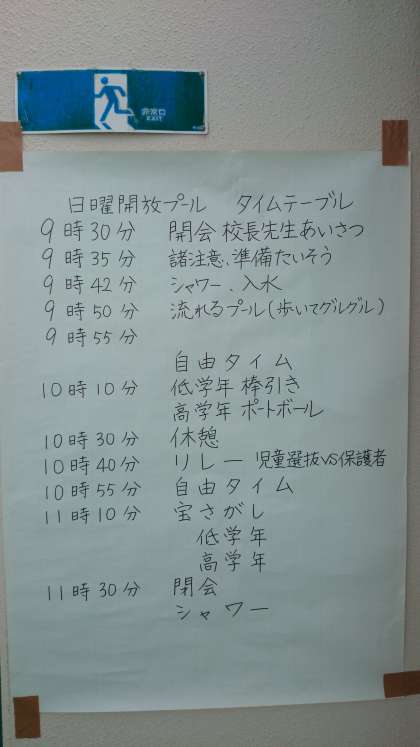 非常口
EXIT
日曜開放プール タイムテーブル
9時30分 開会 校長先生あいさつ
9時35分 諸注意、準備たいそう
9時42分 シャワー、入水
9時50分 流れるプール(歩いてグルグル)
9時55分
自由タイム
10時10分 低学年 棒引き
高学年 ポートボール
10時30分 休憩
10時40分 リレー 児童選抜VS保護者
10時55分 自由タイム
11時10分 宝さがし
低学年
高学年
11時30分 閉会
シャワー